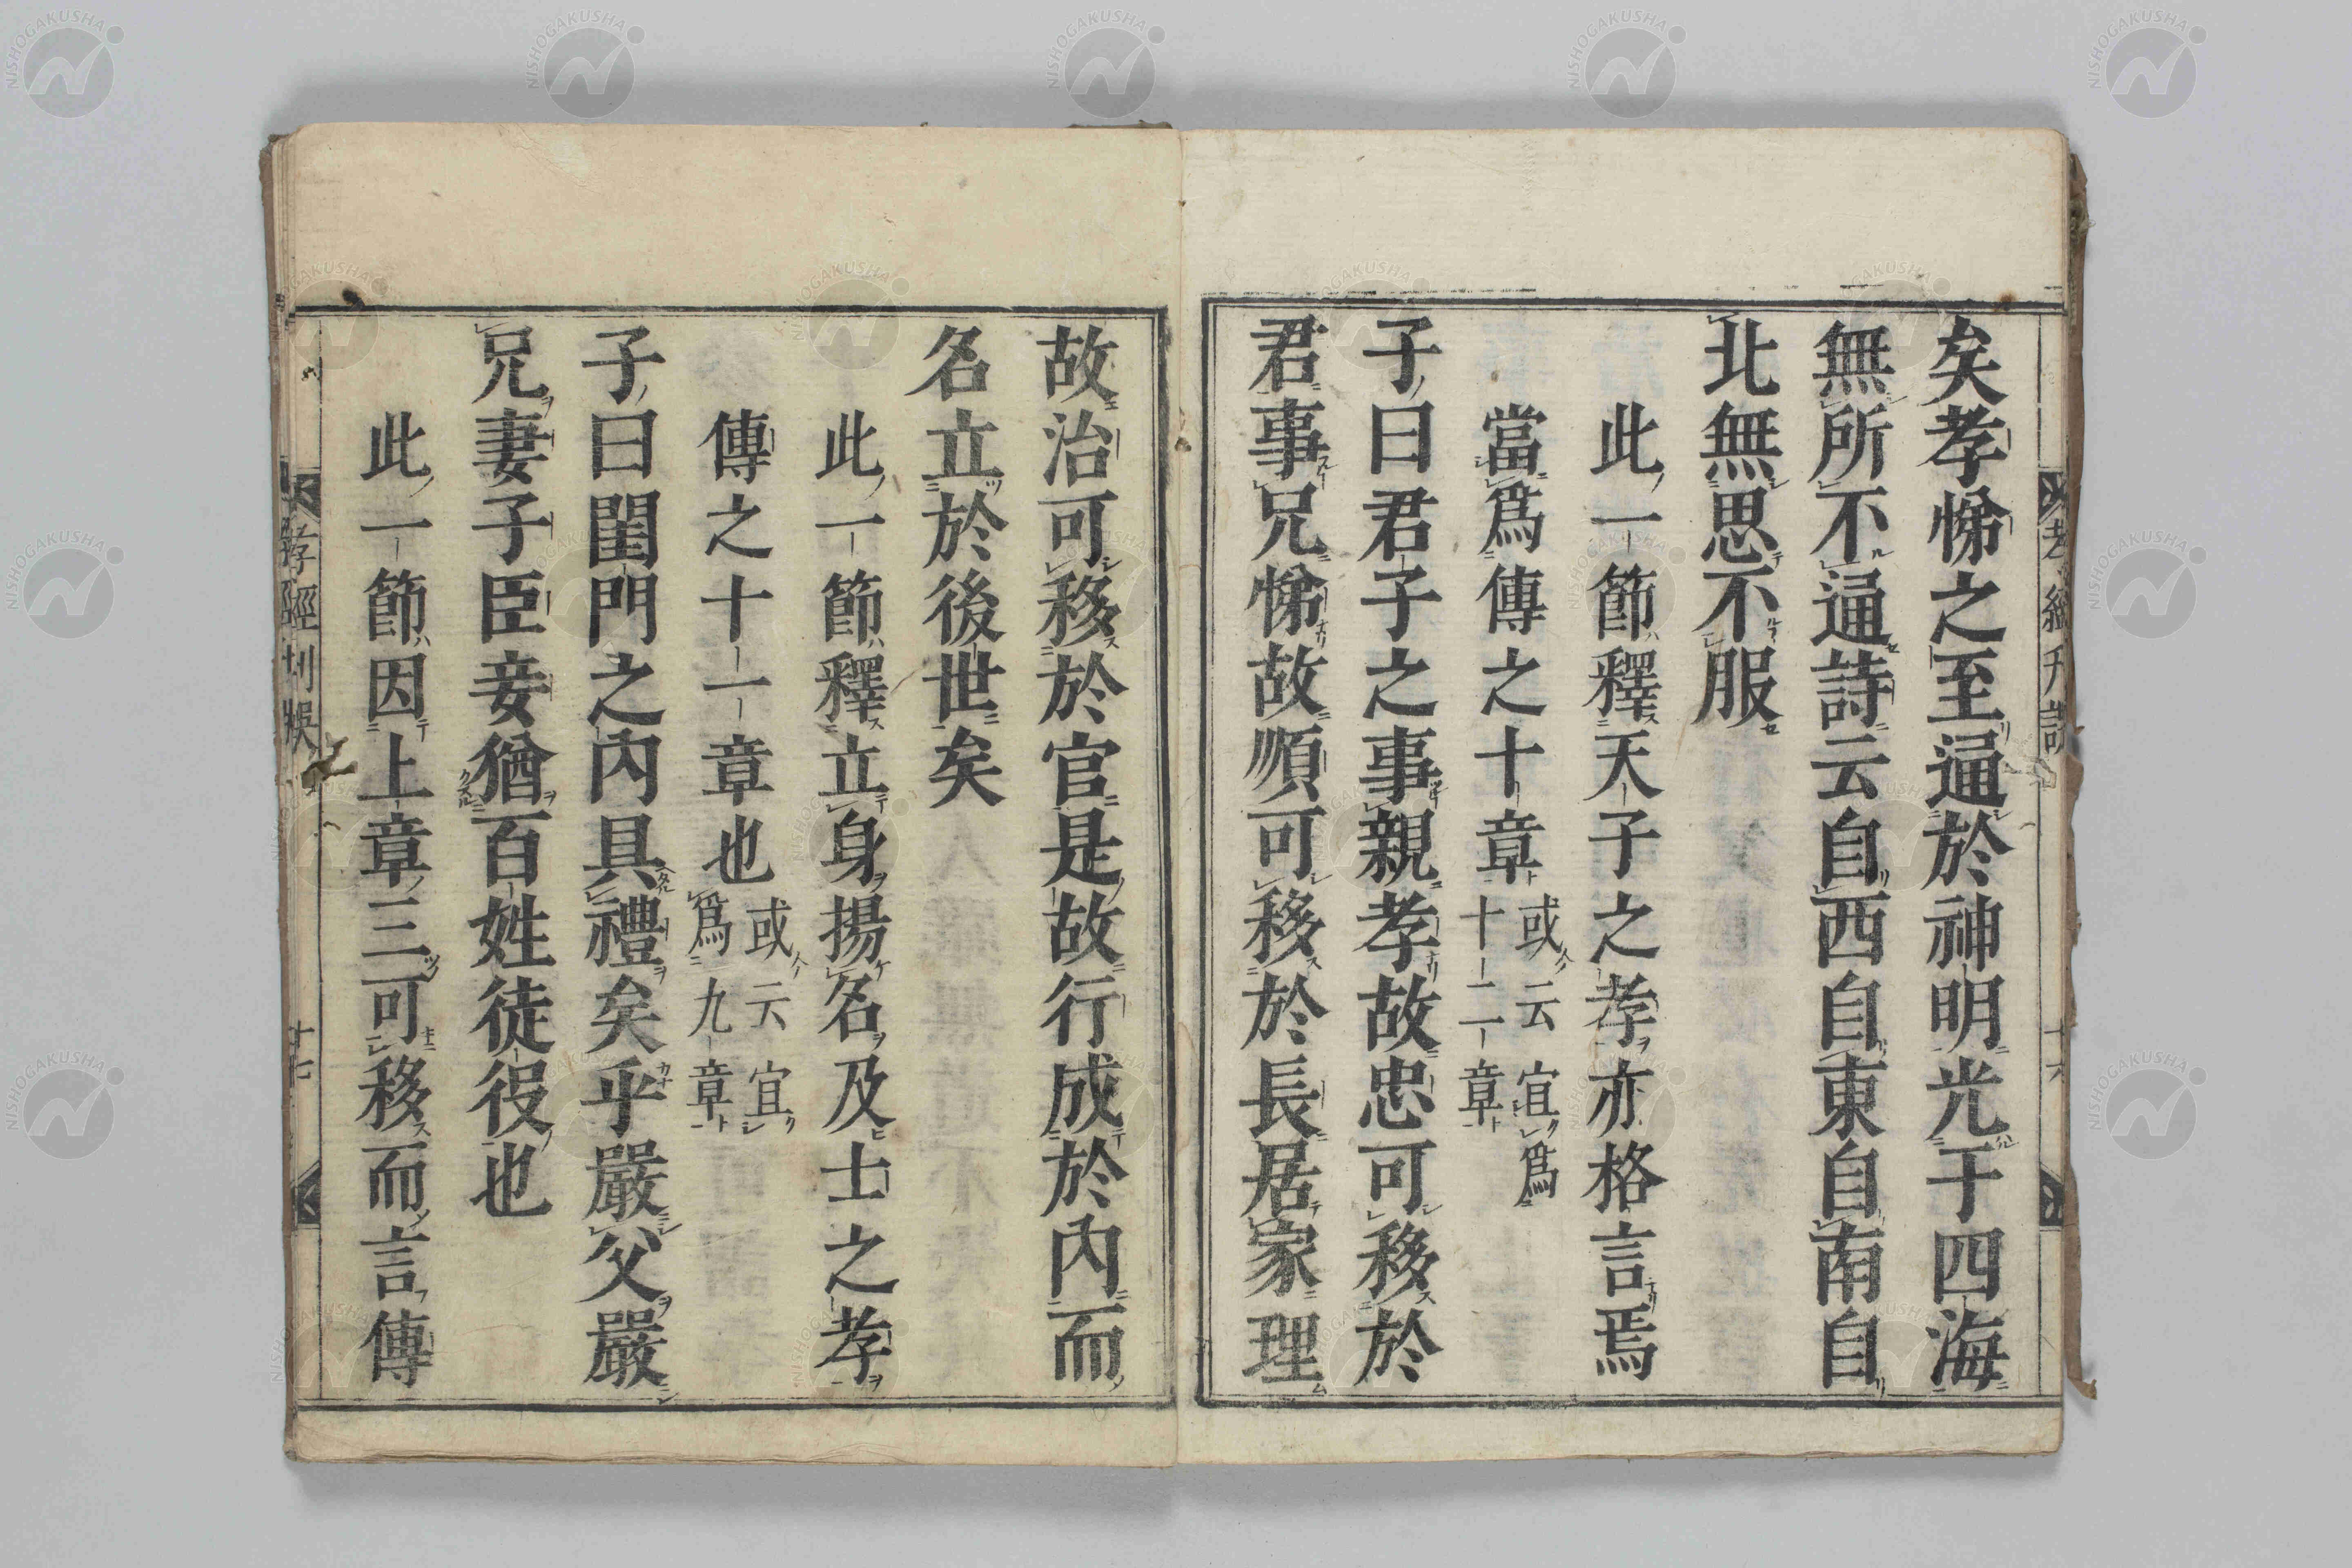 矣孝悌之至通於神明光于四海
無所不通詩云自西自東自南自
北無思不服
此一節釋天子之孝亦格言焉
當爲傳之十章或云宜爲十二章
子曰君子之事親孝故忠可移於
君事兄悌故順可移於長居家理
故治可移於官是故行成於内而
名立於後世矣
此一節釋立身揚名及士之孝
傳之十一章也或云宜爲九章
子曰閨門之内具禮矣乎嚴父嚴
兄妻子臣妾猶百姓徒役也
此一節因上章三可移而言傳
孝經刊誤
十六
孝經刊誤
十七
NISHOGAKUSHA